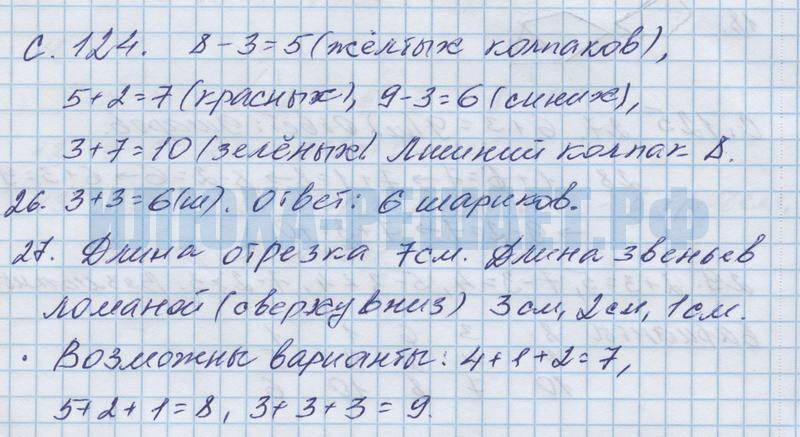 с. 124. 8-3=5 (жёлтых колпаков),
5+2=7 (красных), 9-3=6 (синих),
3+7=10 (зелёных) Лишний колпак 8.
26. 3+3=6(ш). Ответ: 6 шариков.
27. Длина отрезка 7см. Длина звеньев
ломаной (сверху вниз) 3см, 2см, 1см.
· Возможны варианты: 4+1+2=7,
5+2+1=8, 3+3+3=9.